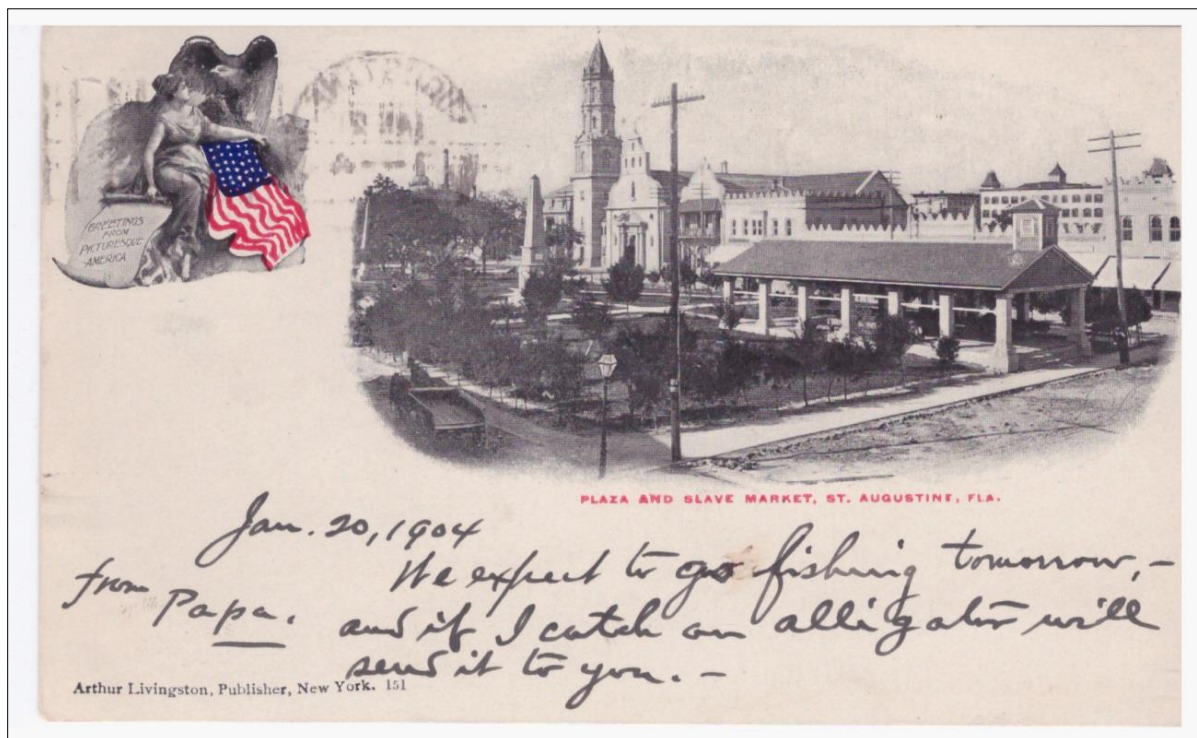 GREETINGS
FROM
PICTURESQUE
AMERICA
PLAZA AND SLAVE MARKET, ST. AUGUSTINE, FLA.
Jan. 20, 1904
We expect to go fishing tomorrow, –
and if I catch an alligator will
send it to you. –
from Papa.
Arthur Livingston, Publisher, New York. 151